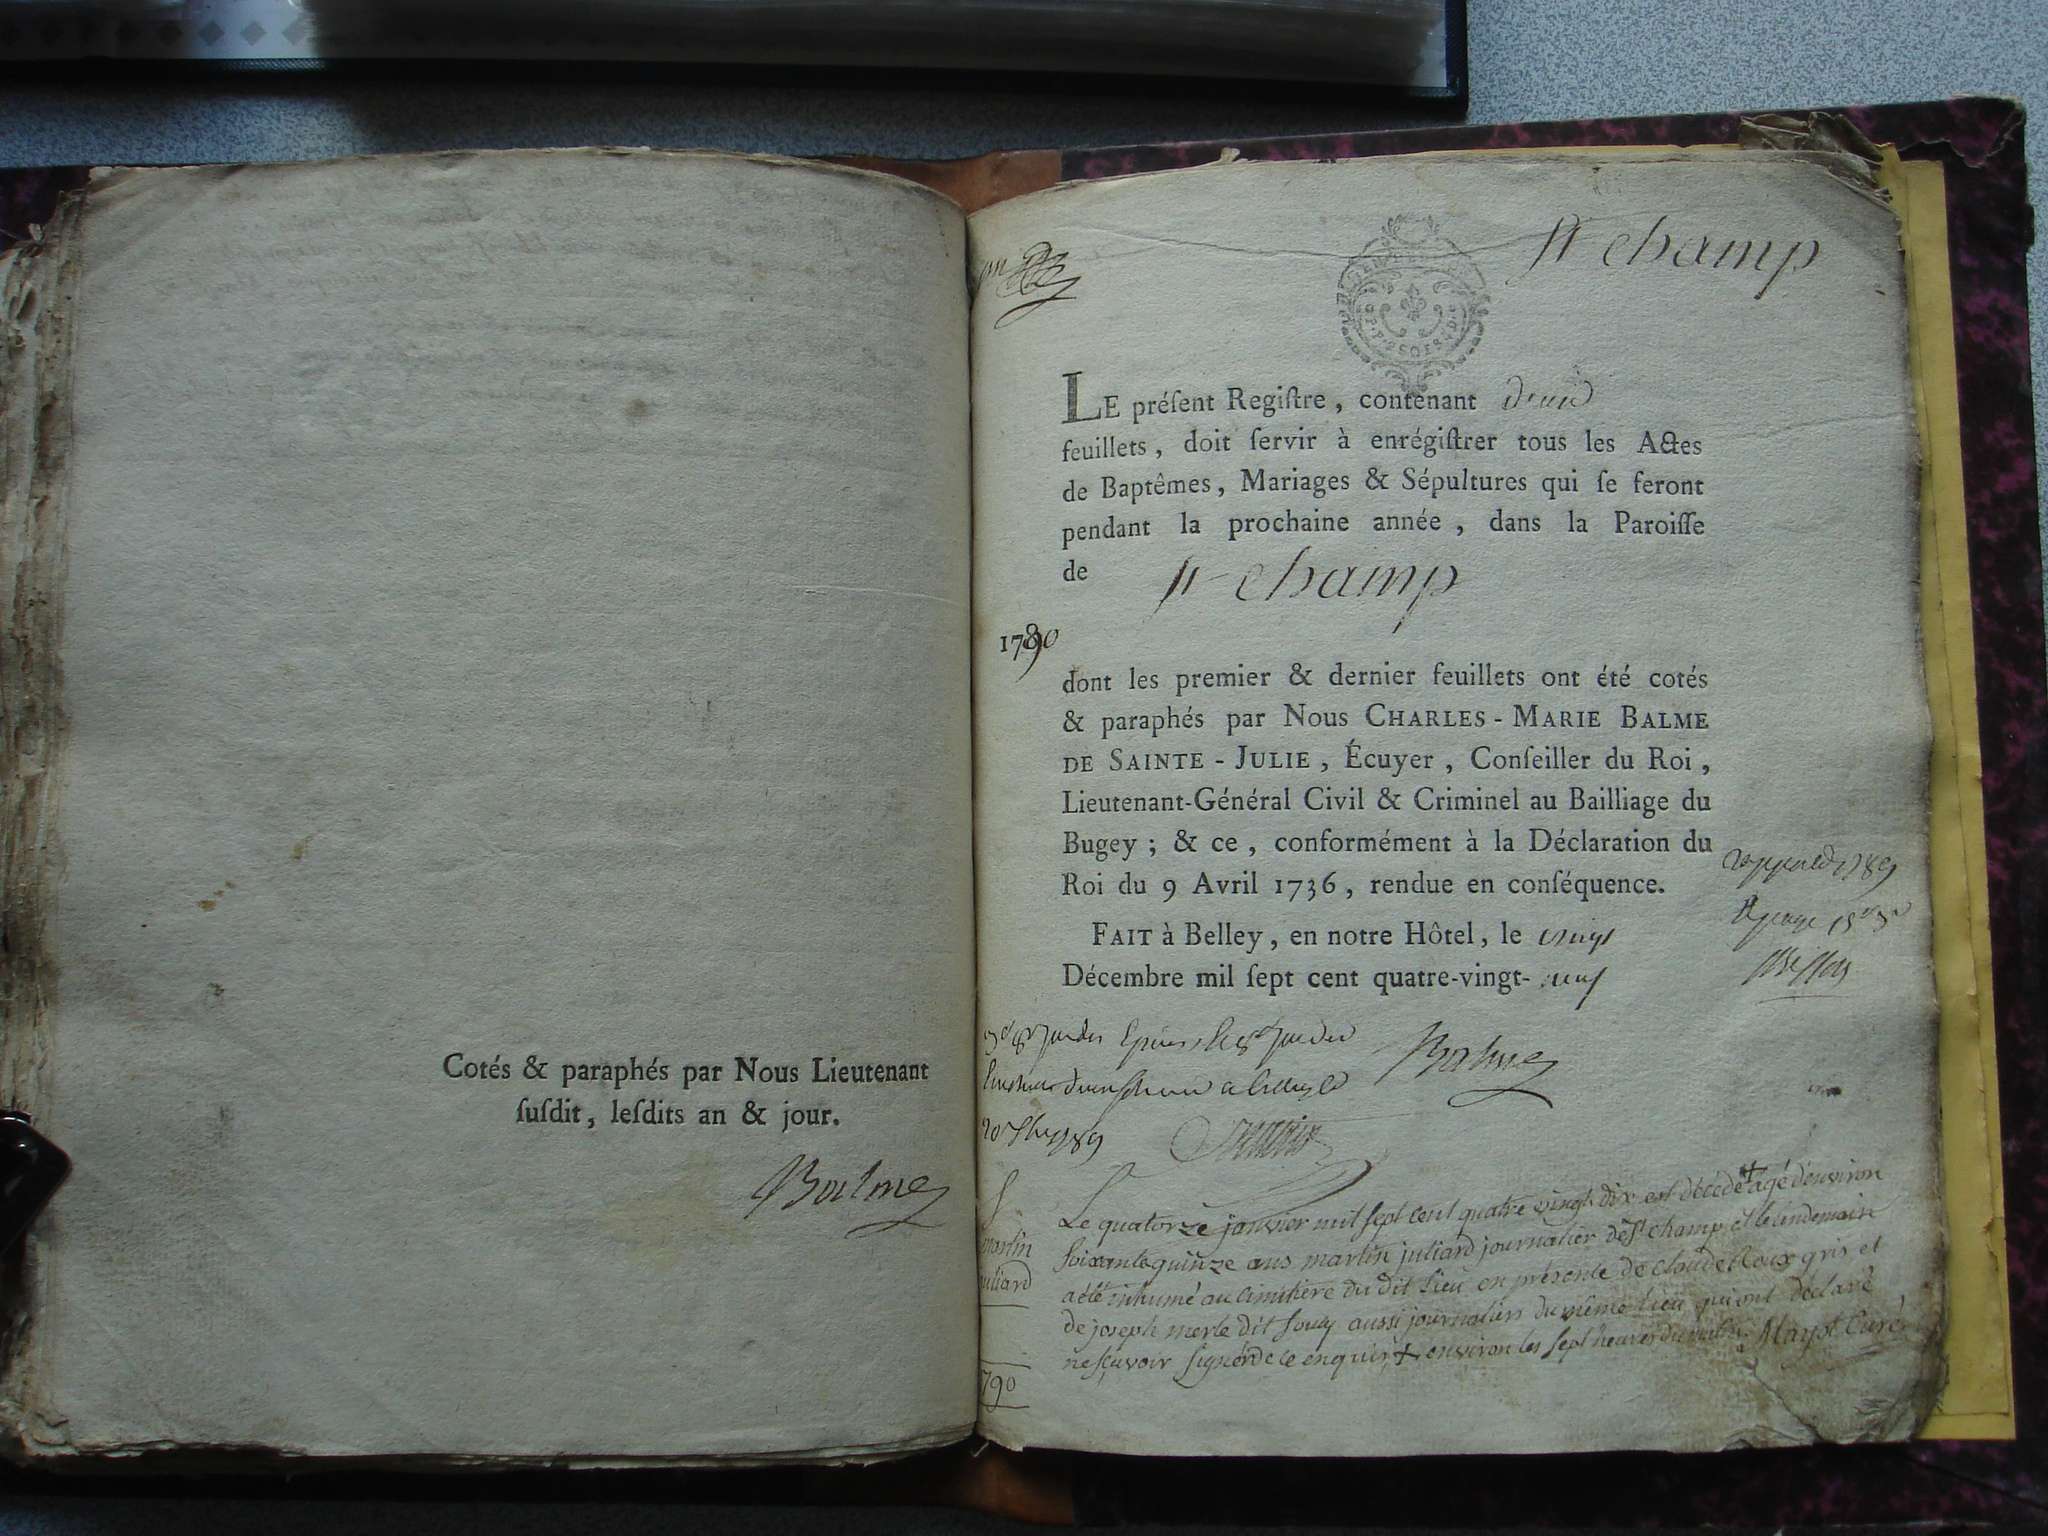 Cotés & paraphés par Nous Lieutenant
ſuſdit, leſdits an & jour.
Balme
St champ
LE préſent Regiſtre, contenant deux
feuillets, doit ſervir à enrégiſtrer tous les Actes
de Baptêmes, Mariages & Sépultures qui ſe feront
pendant la prochaine année, dans la Paroiſſe
de St champ
1790
dont les premier & dernier feuillets ont été cotés
& paraphés par Nous CHARLES-MARIE BALME
DE SAINTE-JULIE, Écuyer, Conſeiller du Roi,
Lieutenant-Général Civil & Criminel au Bailliage du
Bugey; & ce, conformément à la Déclaration du
Roi du 9 Avril 1736, rendue en conſéquence.
FAIT à Belley, en notre Hôtel, le vingt
Décembre mil ſept cent quatre-vingt-neuf
Balme
S
martin
juliard
1790
Le quatorze janvier mil sept cent quatre vingt dix est décédé + agé d'environ
soixante quinze ans martin juliard journalier de St champ, et le lendemain
a été inhumé au cimitiere du dit lieu en présence de claude Roux gris et
de joseph merle dit aussi journaliers du même lieu qui ont déclaré
ne sçavoir signer de ce enquis + environ les sept heures du matin. Mayot Curé